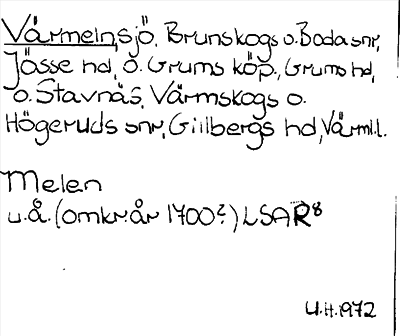 Värmeln, sjö, Brunskogs o. Boda snr,
Jösse hd, o. Grums köp., Grums hd,
o. Stavnäs, Värmskogs o.
Högeruds snr, Gillbergs hd, Värml.l.
Melen
u.å. (omkr. år 1700?) LSAR8
U.H. 1972